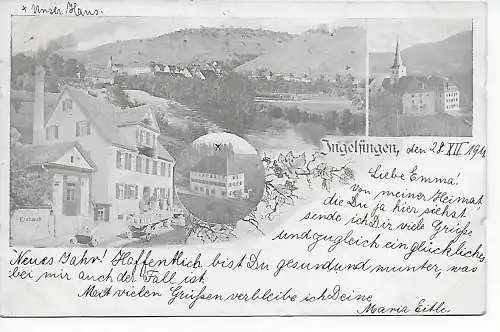 × Unser Haus.
Ingelfingen, den 28 XII 1901
Liebe Emma!
Von meiner Heimat,
die Du ja hier siehst
sende ich Dir viele Grüße
und zugleich ein glückliches
Neues Jahr! Hoffentlich bist Du gesund und munter, was
bei mir auch der Fall ist.
Mit vielen Grüßen verbleibe ich Deine
Maria Eitle.